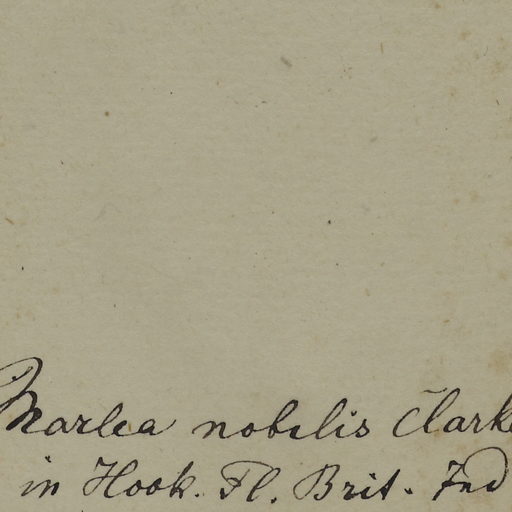 Marlea nobilis Clarke
in Hook. Fl. Brit. Ind